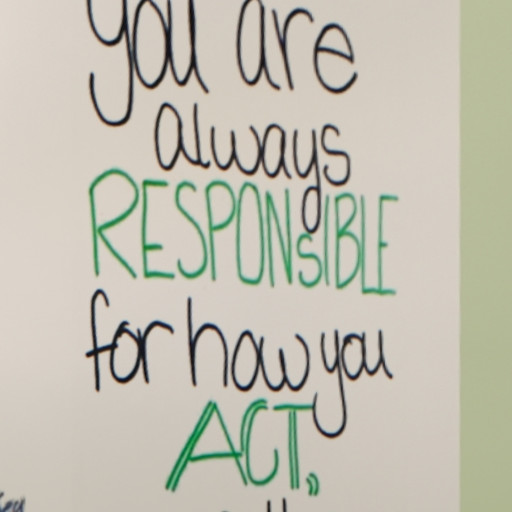 you are
always
RESPONSIBLE
for how you
ACT,